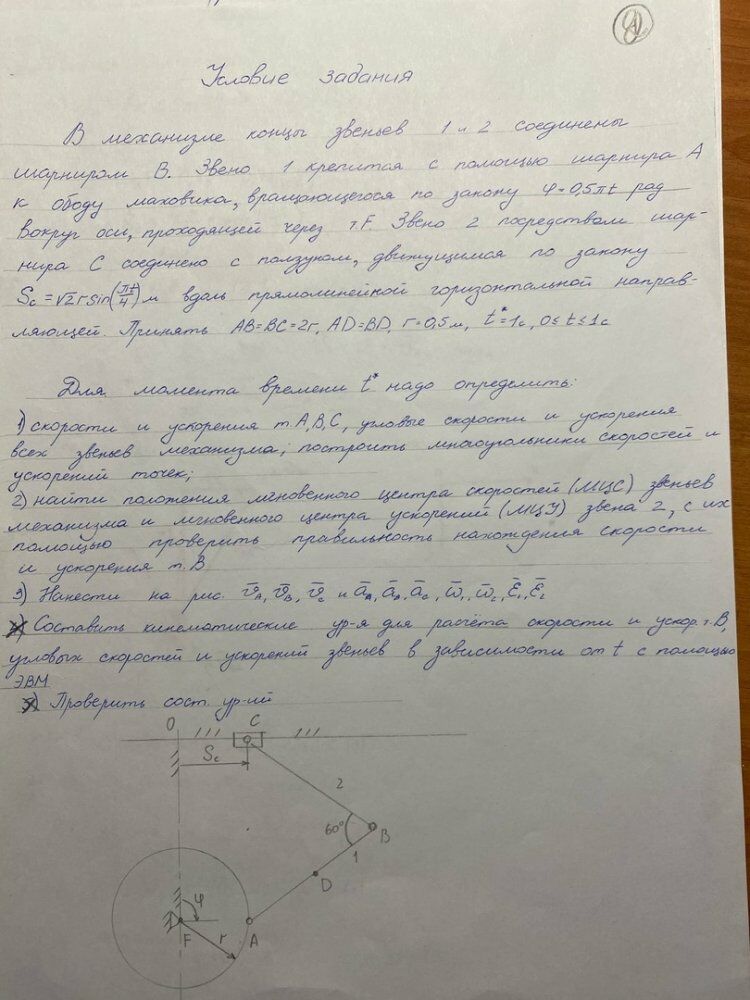 Условие задания
В механизме концы звеньев 1 и 2 соединены
шарниром В. Звено 1 крепится с помощью шарнира А
к ободу маховика, вращающегося по закону φ=0,5πt рад
вокруг оси, проходящей через т.F. Звено 2 посредством шар-
нира С соединено с ползуном, движущимся по закону
Sc = √2 r sin(πt/4) м вдоль прямолинейной горизонтальной направ-
ляющей. Принять АВ=ВС=2r, AD=BD, r=0,5 м, t*=1с, 0≤t≤1с
Для момента времени t* надо определить:
1) скорости и ускорения т.А,В,С, угловые скорости и ускорения
всех звеньев механизма; построить многоугольники скоростей и
ускорений точек;
2) найти положения мгновенного центра скоростей (МЦС) звеньев
механизма и мгновенного центра ускорений (МЦУ) звена 2, с их
помощью проверить правильность нахождения скорости
и ускорения т.В
3) Нанести на рис.
Составить кинематические ур-я для расчёта скорости и ускор. т.В,
угловых скоростей и ускорений звеньев в зависимости от t с помощью
ЭВМ
Проверить сост. ур-ий
O
C
Sc
2
60°
B
1
D
φ
F
r
A